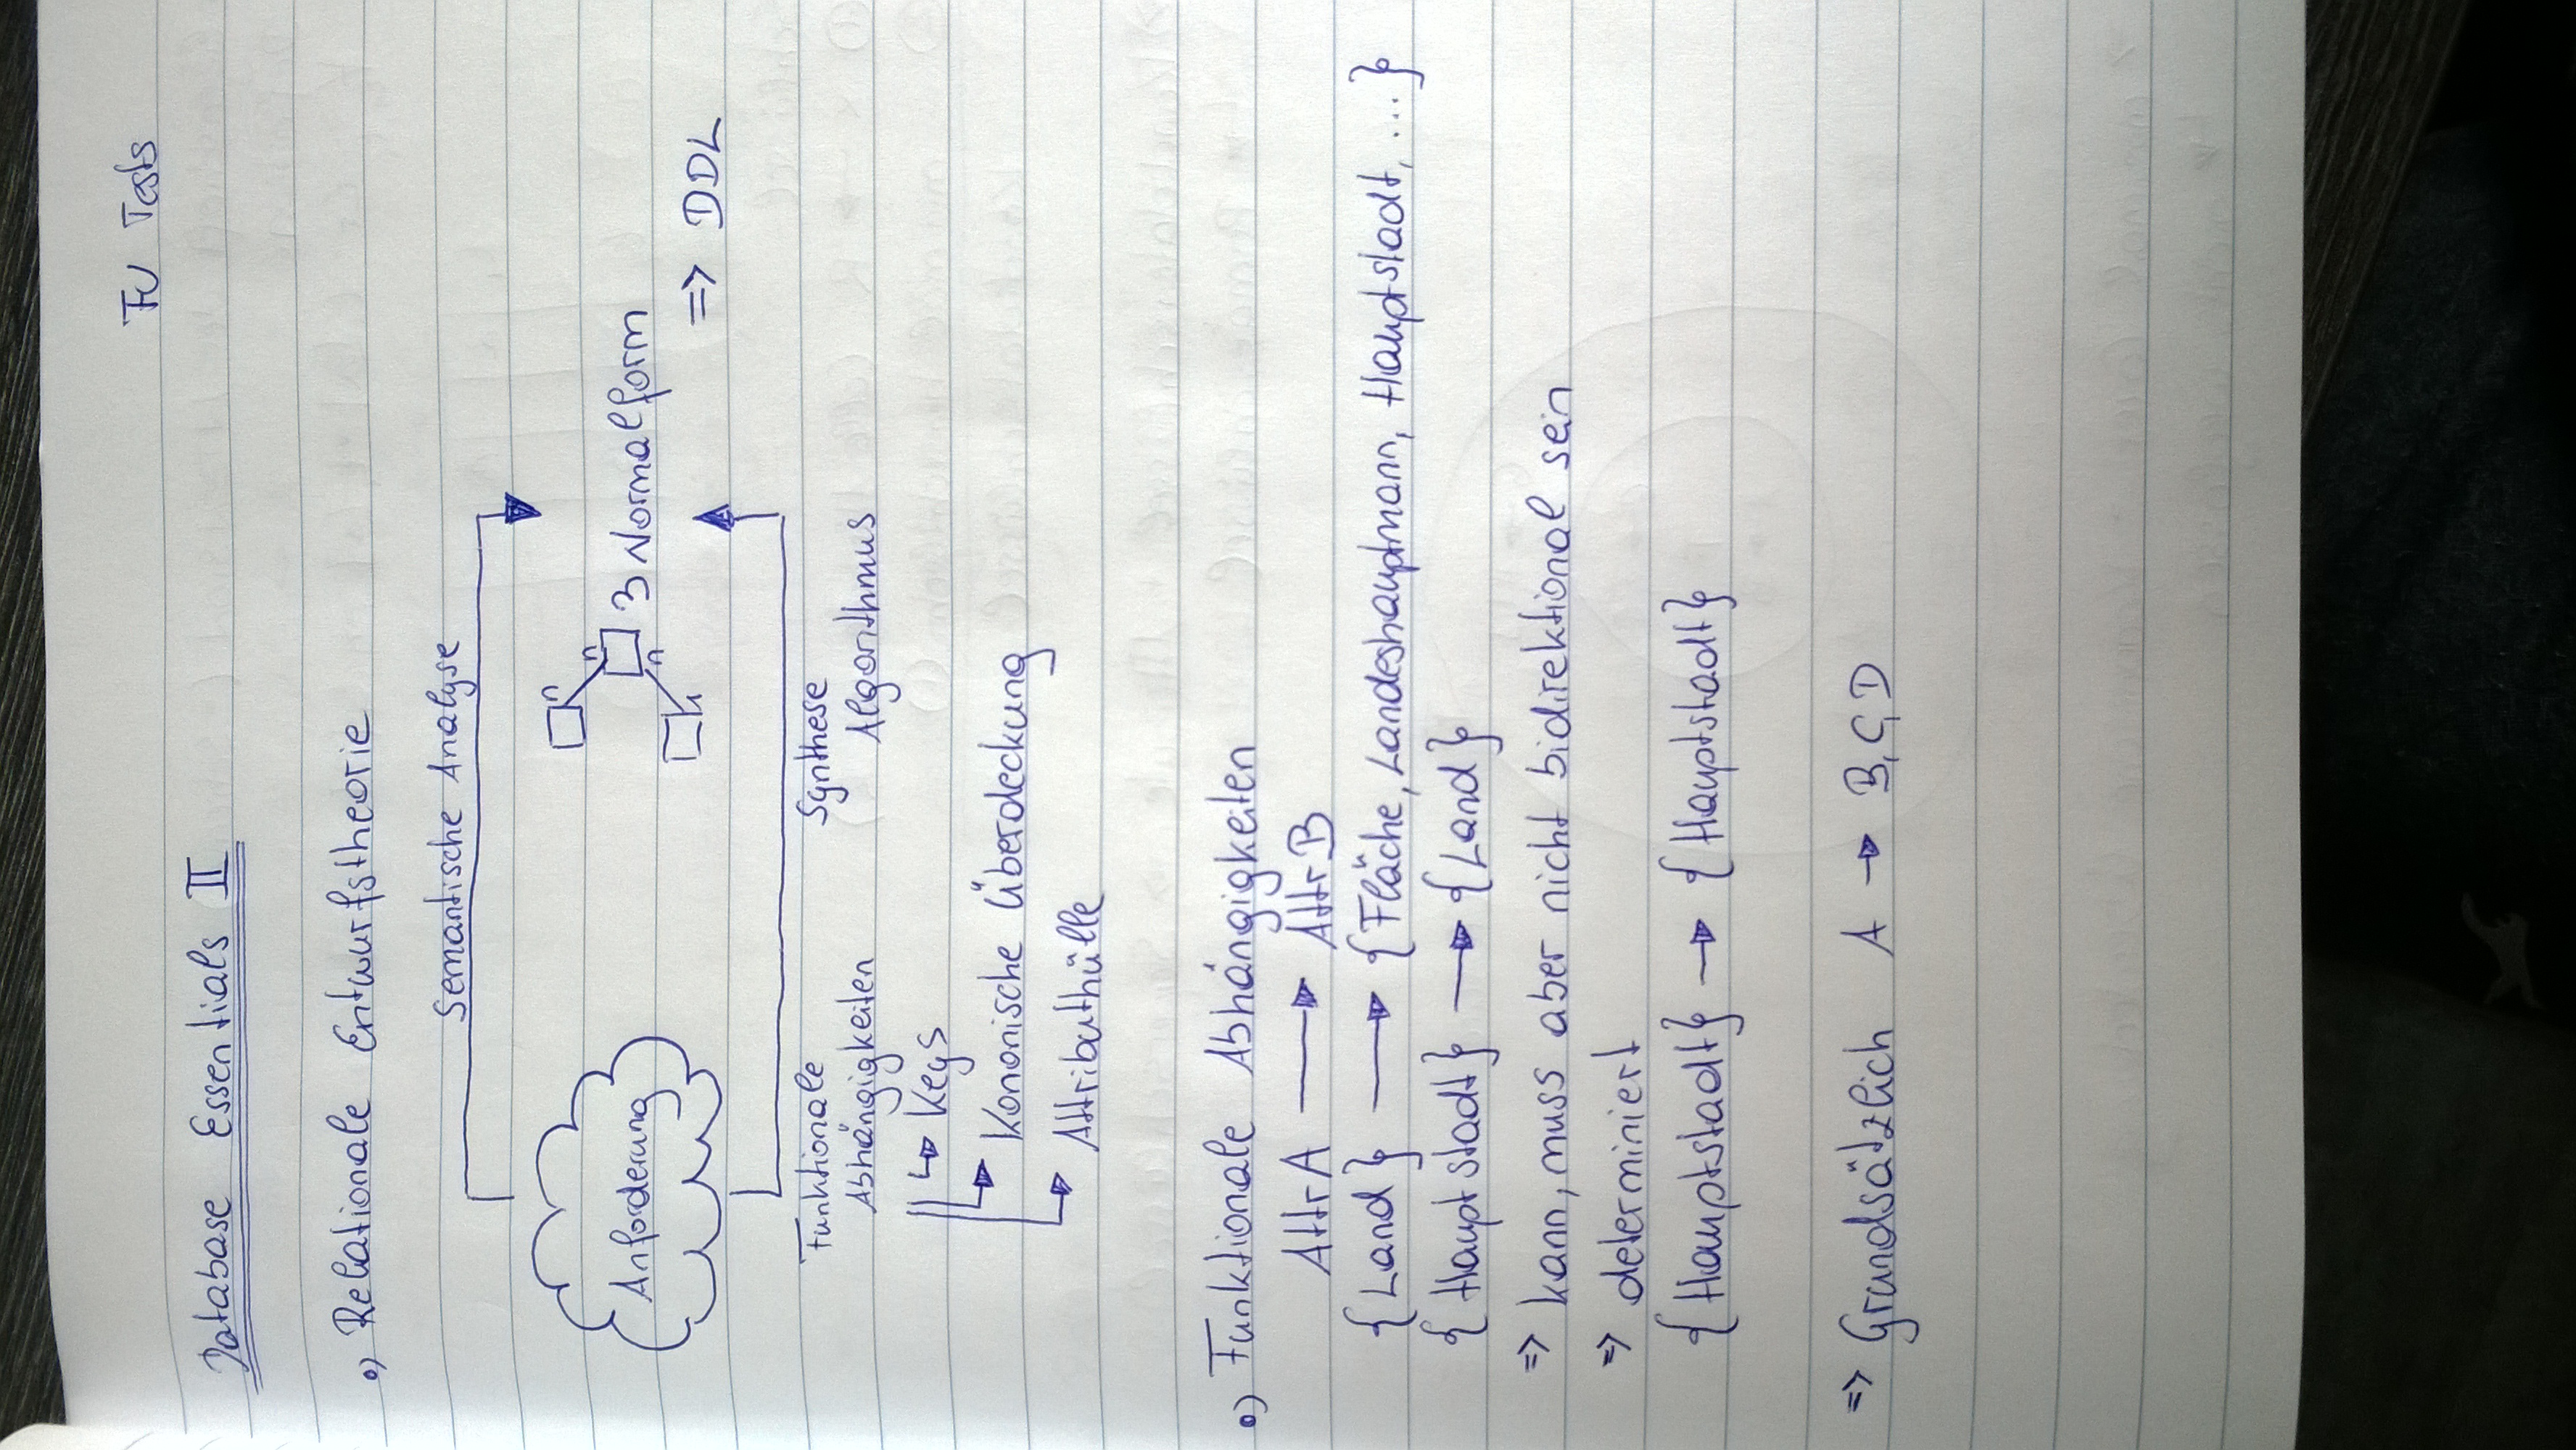 FU Tests
Database Essentials II
•) Relationale Entwurfstheorie
Semantische Analyse
Anforderung
n
n
3 Normalform
n
1
=> DDL
Funktionale Synthese
Abhängigkeiten Algorithmus
↳ Keys
↳ Kononische Überdeckung
↳ Attributhülle
•) Funktionale Abhängigkeiten
Attr A → Attr B
{Land} → {Fläche, Landeshauptmann, Hauptstadt, ...}
{Hauptstadt} → {Land}
=> kann, muss aber nicht bidirektional sein
=> determiniert
{Hauptstadt} → {Hauptstadt}
=> Grundsätzlich A → B, C, D